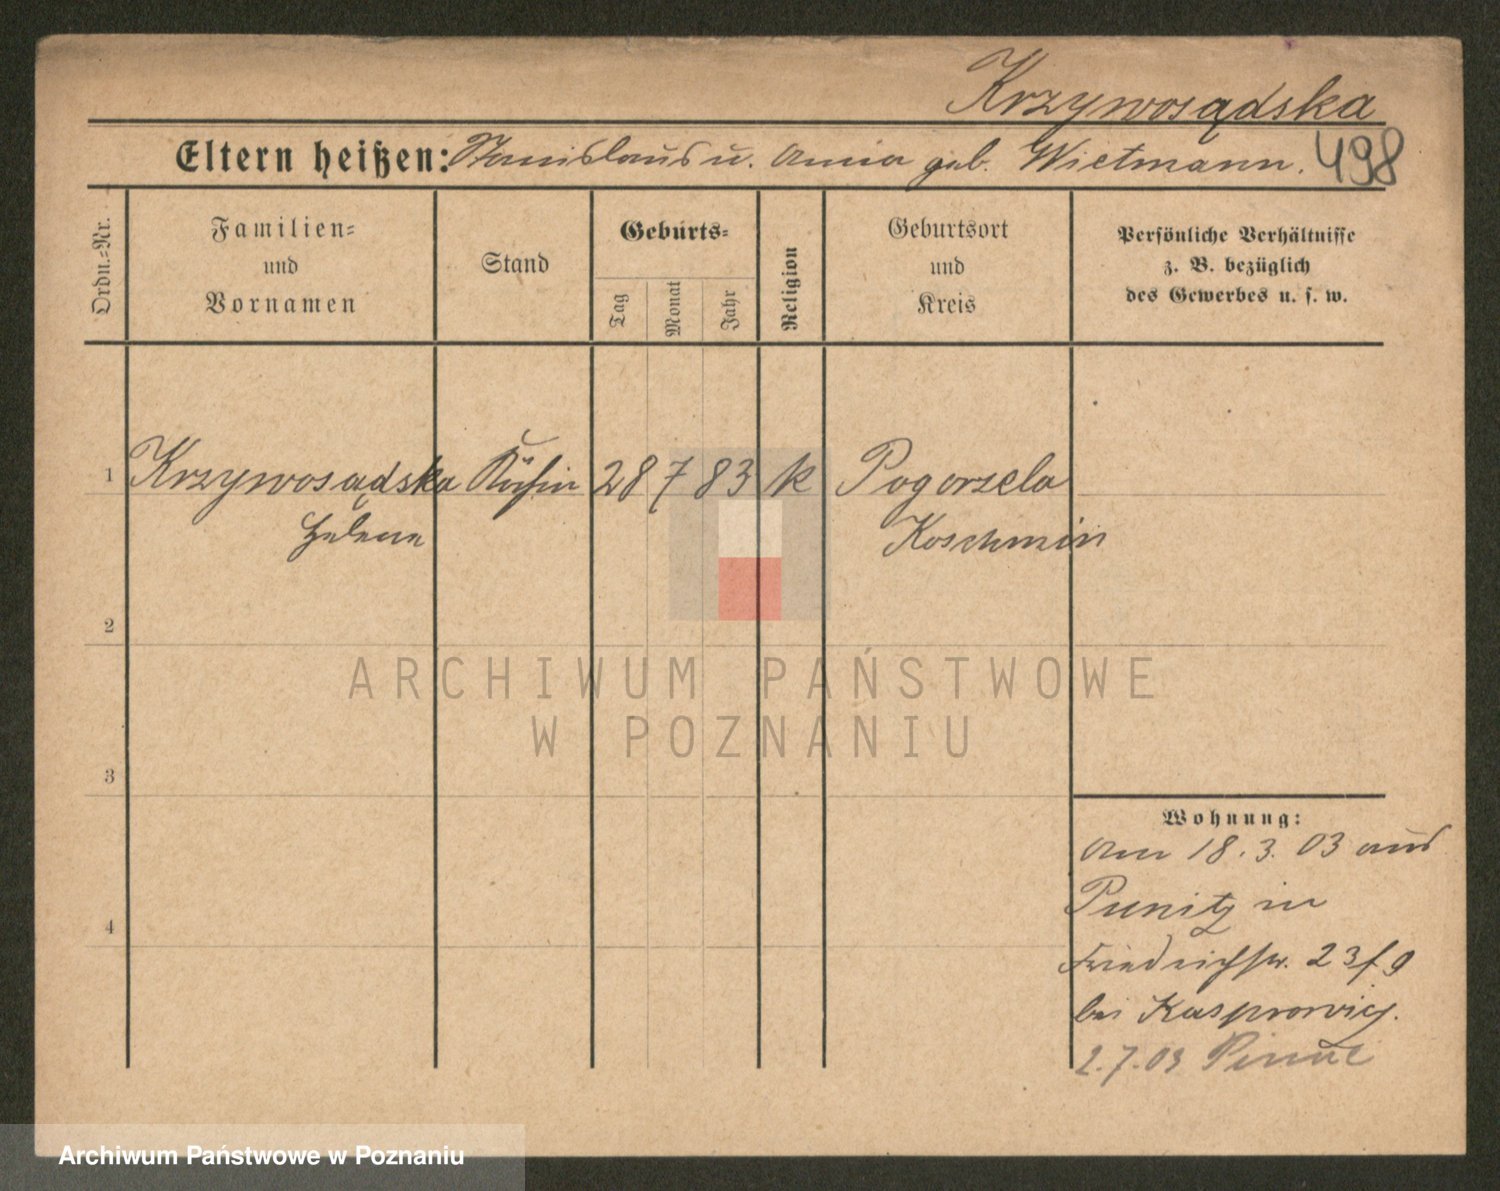 Krzywosądska
Eltern heißen: Stanislaus u. Anna geb. Wietmann. 498
Ordn.=Nr.
Familien=
und
Vornamen
Stand
Geburts=
Tag
Monat
Jahr
Religion
Geburtsort
und
Kreis
Persönliche Verhältnisse
z. B. bezüglich
des Gewerbes u. s. w.
1 Krzywosądska 28 7 83 k Pogorzela
Helene Koschmin
2
3
4
Wohnung:
Am 18. 3. 03 aus
Punitz in
Friedrichstr. 23 f 9
bei Kasprowicz.
2.7.03
ARCHIWUM PAŃSTWOWE
W POZNANIU
Archiwum Państwowe w Poznaniu